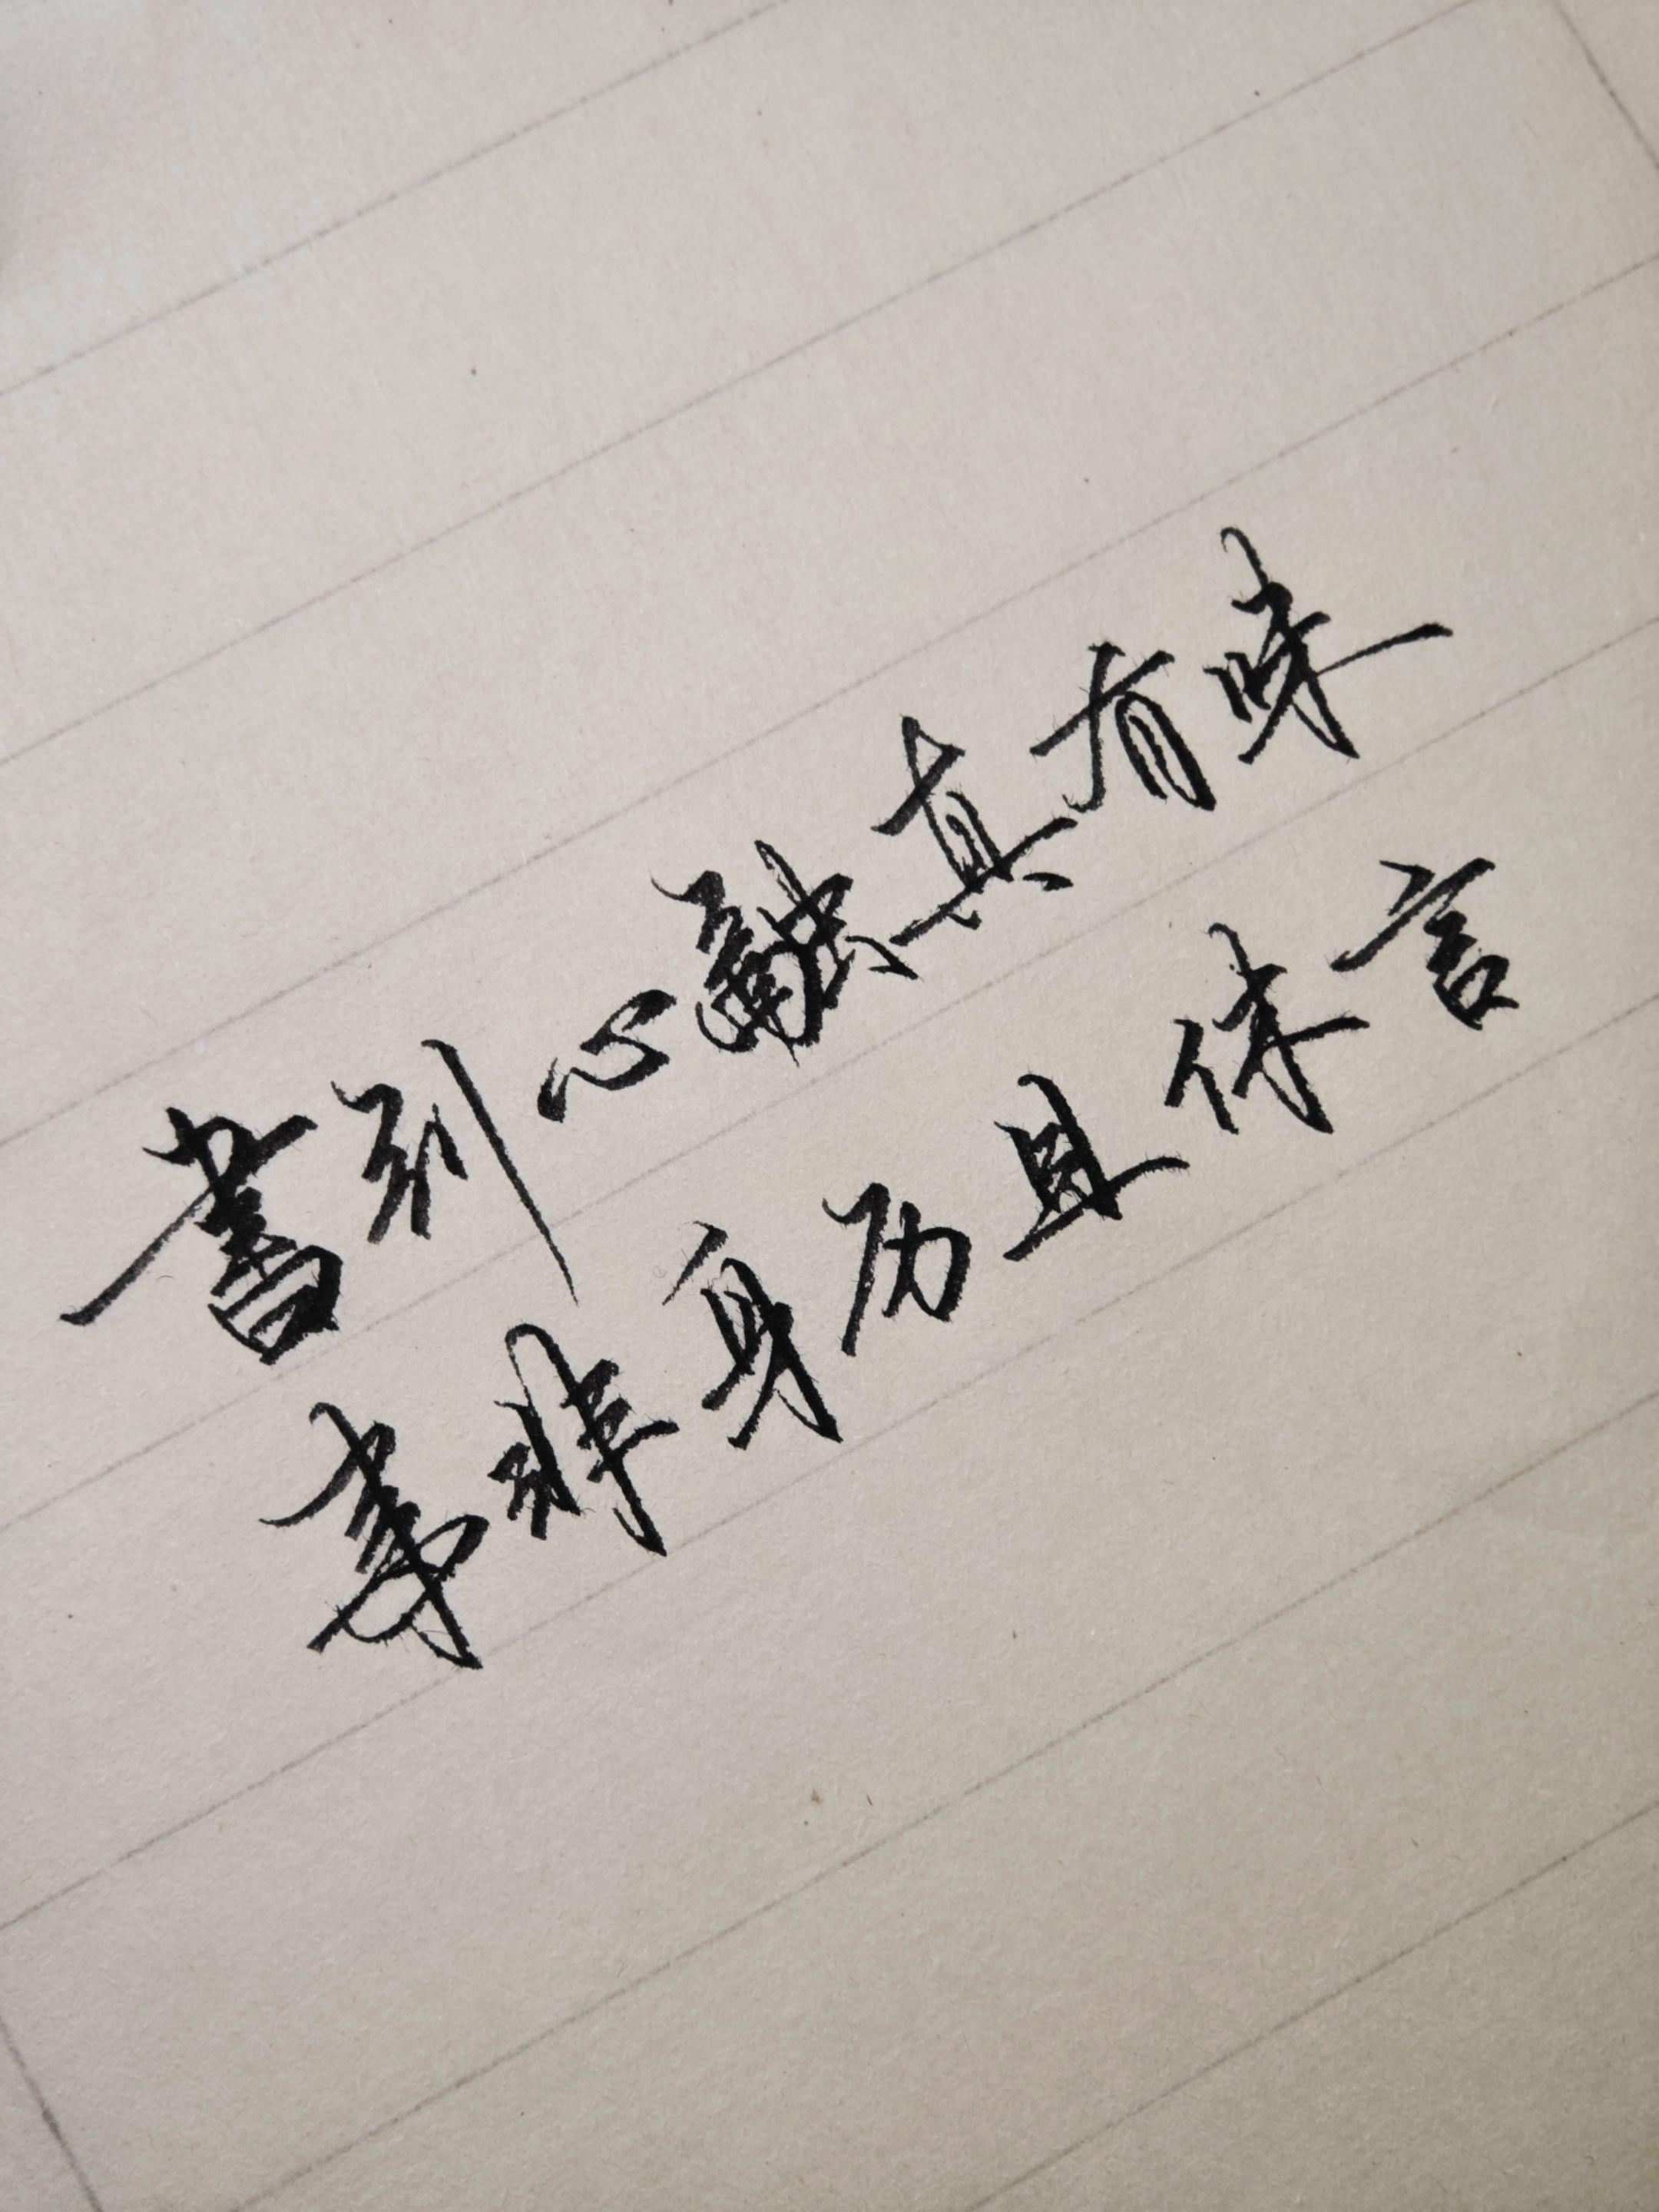 書到心融真有味
事非身历且休言